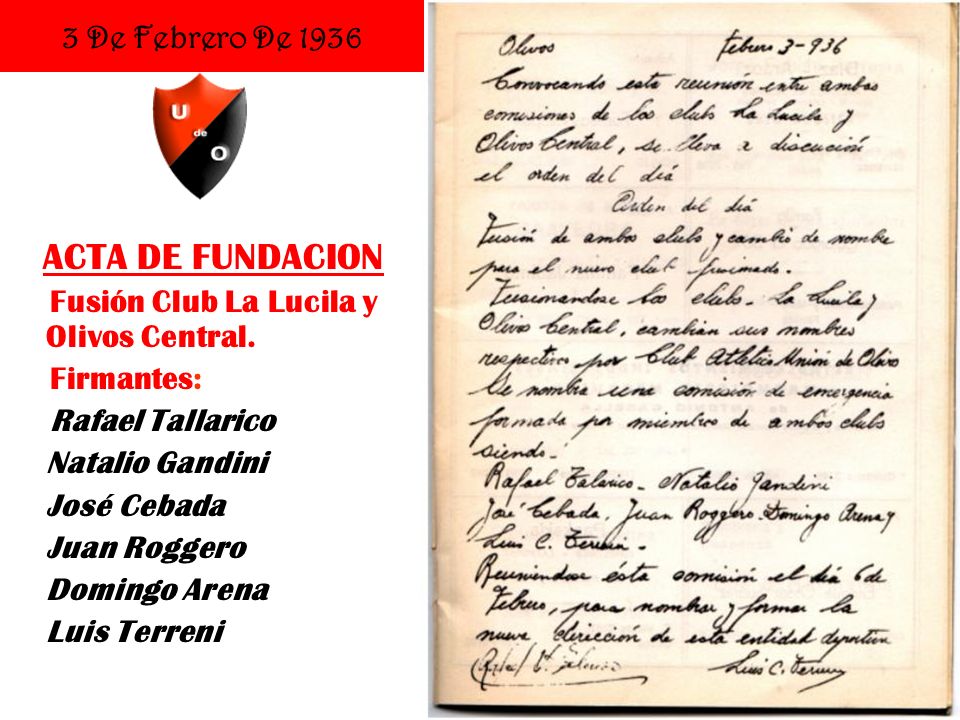 3 De Febrero De 1936
U
de
O
ACTA DE FUNDACION
Fusión Club La Lucila y
Olivos Central.
Firmantes:
Rafael Tallarico
Natalio Gandini
José Cebada
Juan Roggero
Domingo Arena
Luis Terreni
Olivos Febrero 3-936
Convocando esta reunión entre ambas
comisiones de los clubs La Lucila y
Olivos Central, se lleva a discución
el orden del día
Orden del día
Fusión de ambos clubs y cambio de nombre
para el nuevo club fusionado.
Fusionandose los clubs. La Lucila y
Olivos Central, cambian sus nombres
respectivos por Club Atletico Unión de Olivo
Se nombra una comisión de emergencia
formada por miembros de ambos clubs
siendo.
Rafael Talarico - Natalio Gandini
José Cebada, Juan Roggero. Domingo Arena y
Luis C. Terreni.
Reuniendose ésta comisión el día 6 de
Febrero, para nombrar y formar la
nueva dirección de esta entidad deportiva
Luis C. Terreni